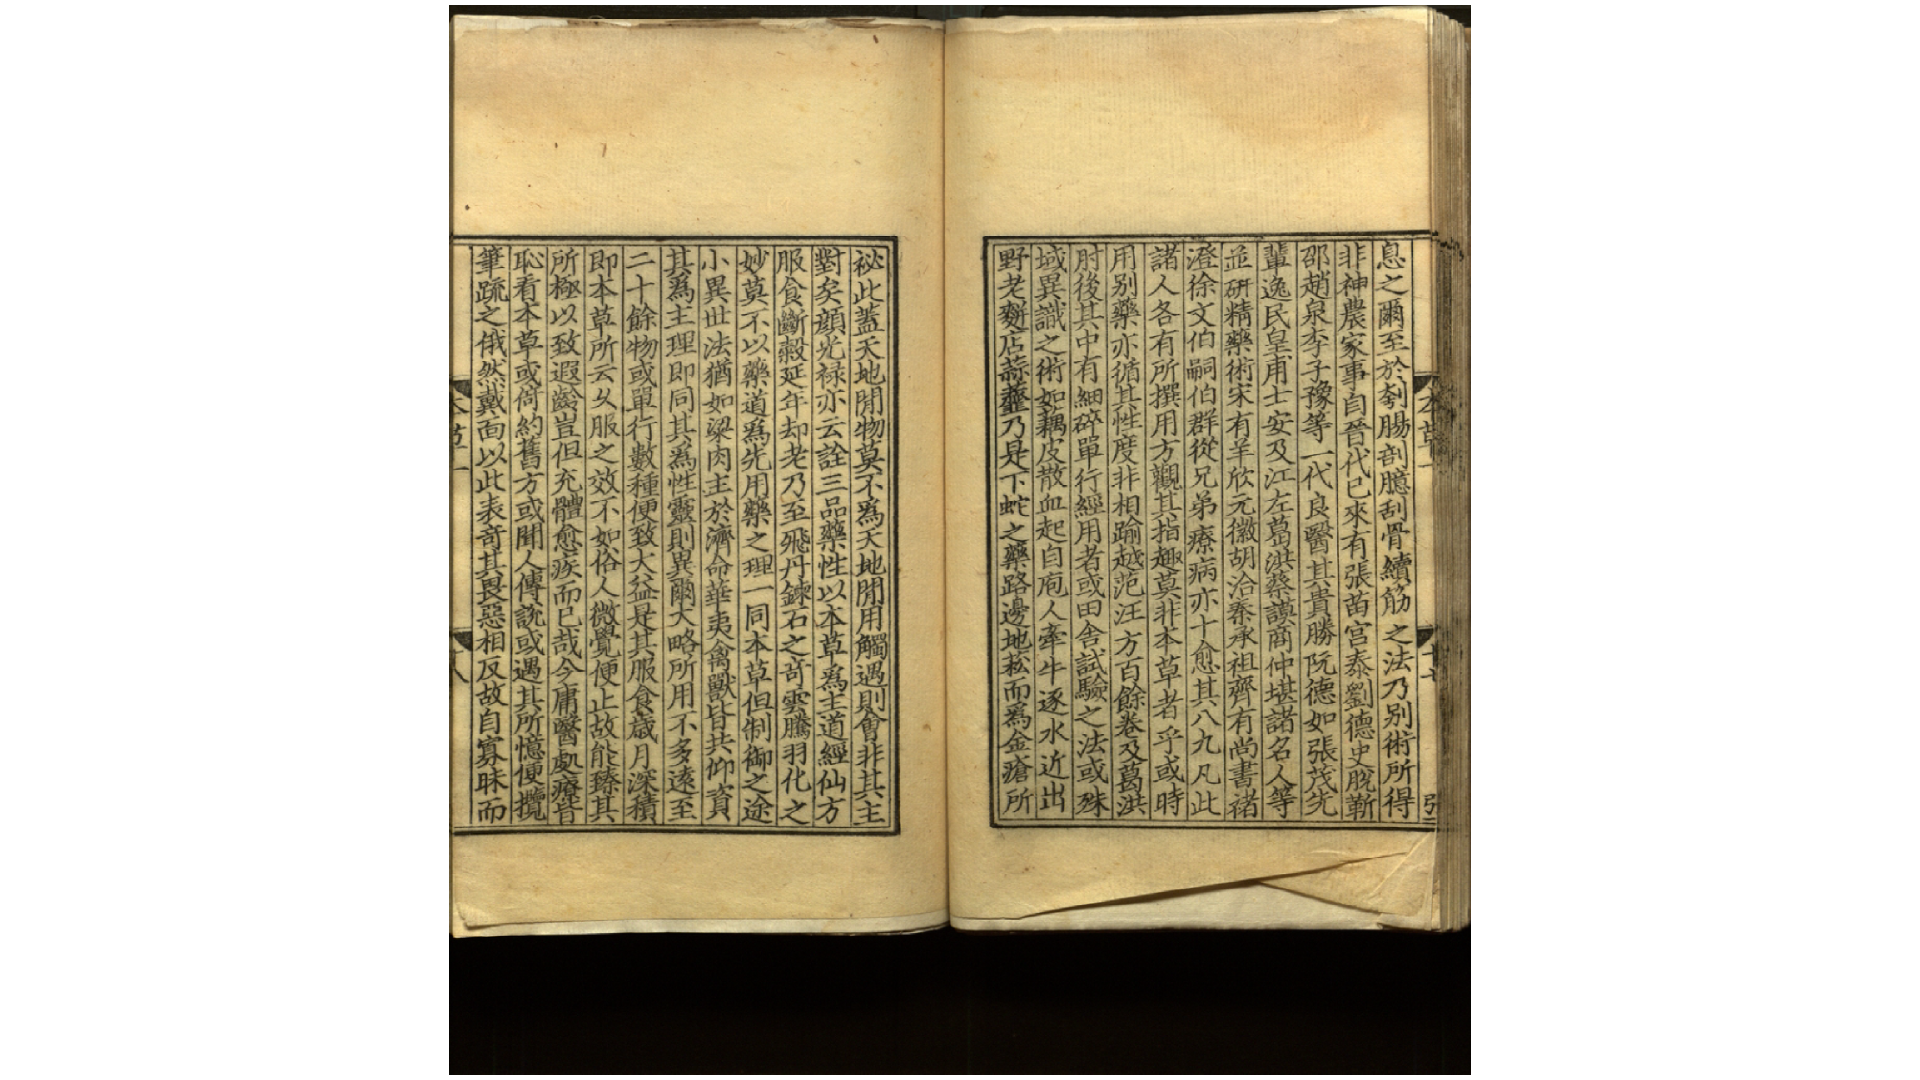 息之爾至於刳腸剖臆刮骨續筋之法乃别術所得
非神農家事自晉代已來有張苗宫泰劉德史脫靳
邵趙泉李子豫等一代良醫其貴勝阮德如張茂先
輩逸民皇甫士安及江左葛洪蔡謨商仲堪諸名人等
並硏精藥術宋有羊欣元徽胡洽秦承祖齊有尚書褚
澄徐文伯嗣伯群從兄弟療病亦十愈其八九凡此
諸人各有所撰用方觀其指趣莫非本草者乎或時
用别藥亦循其性度非相踰越范汪方百餘卷及葛洪
肘後其中有細碎單行經用者或田舍試驗之法或殊
域異識之術如藕皮散血起自庖人牽牛逐水近出
野老麪店蒜虀乃是下蛇之藥路邊地菘而爲金瘡所
本草一
十七
祕此蓋天地閒物莫不爲天地閒用觸遇則會非其主
對矣顔光禄亦云詮三品藥性以本草爲主道經仙方
服食斷穀延年却老乃至飛丹鍊石之竒雲騰羽化之
妙莫不以藥道爲先用藥之理一同本草但制御之途
小異世法猶如梁肉主於濟命華夷禽獸皆共仰資
其爲主理即同其爲性靈則異爾大略所用不多遠至
二十餘物或單行數種便致大益是其服食歳月深積
即本草所云久服之效不如俗人微覺便止故能臻其
所極以致遐齡豈但充體愈疾而已哉今庸醫處療皆
恥看本草或倚約舊方或聞人傳說或遇其所憶便攬
筆疏之俄然戴面以此表竒其畏惡相反故自寡昧而